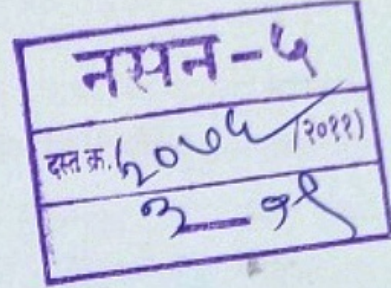 नसन-५
दस्त क्र. ५२०७५ /२०११)
३-१९